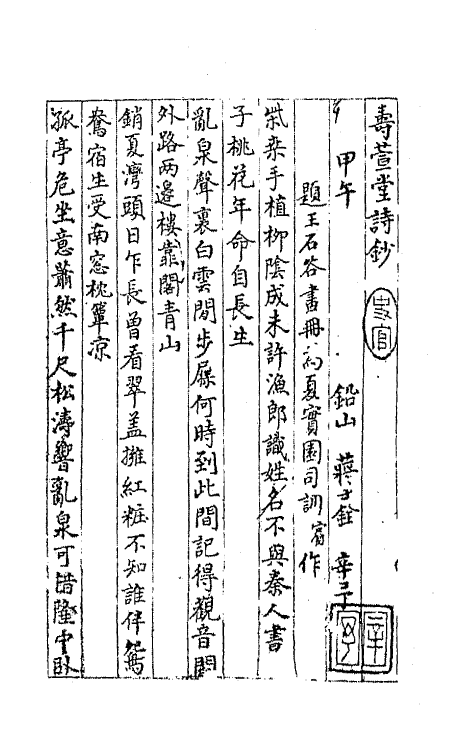 壽萱堂詩鈔
甲午 鉛山 蔣士銓
題王石谷畫冊為夏實園司訓甯作
柴桑手植柳陰成未許漁郎識姓名不與秦人書
子桃花年命自長生
亂泉聲裏白雲閒步屧何時到此間記得觀音閣
外路两邊樓靠閣青山
銷夏灣頭日乍長曾看翠盖擁紅粧不知誰伴鴛
鴦宿生受南窓枕簟凉
孤亭危坐意蕭然千尺松濤響亂泉可惜隆中卧